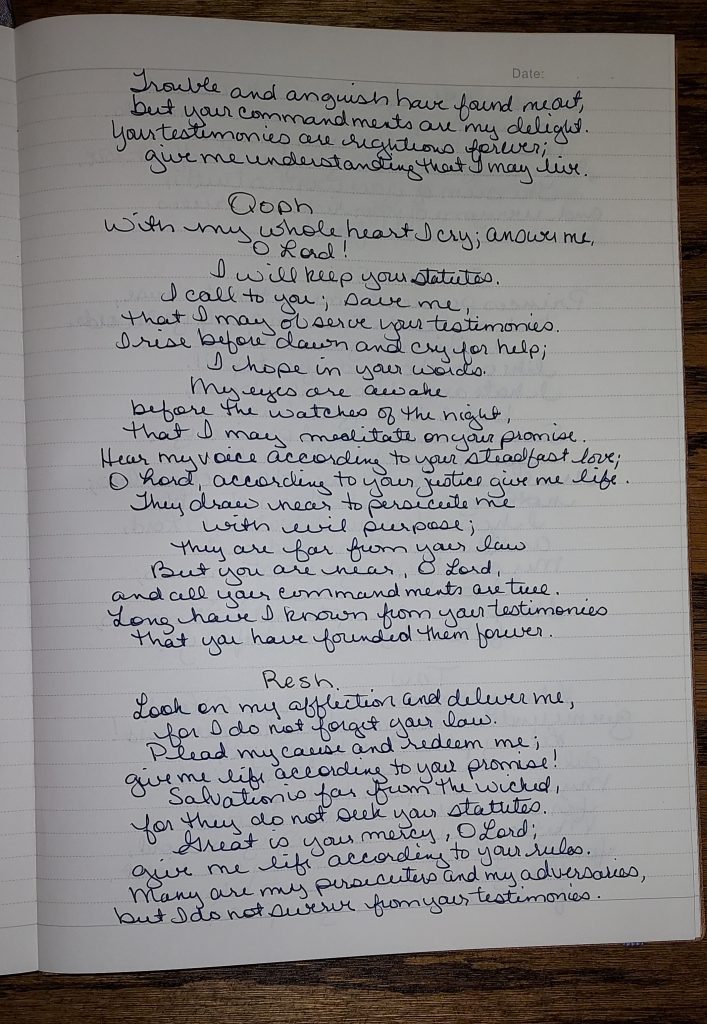 Date:
Trouble and anguish have found me out,
but your commandments are my delight.
Your testimonies are rightious forever;
give me understanding that I may live.
Qoph
With my whole heart I cry; answer me,
O Lord!
I will keep your statutes.
I call to you; save me,
that I may observe your testimonies.
I rise before dawn and cry for help;
I hope in your words.
My eyes are awake
before the watches of the night,
that I may meditate on your promise.
Hear my voice according to your steadfast love;
O Lord, according to your justice give me life.
They draw near to persecute me
with evil purpose;
they are far from your law
But you are near, O Lord,
and all your commandments are true.
Long have I known from your testimonies
that you have founded them forever.
Resh
Look on my affliction and deliver me,
for I do not forget your law.
Plead my cause and redeem me;
give me life according to your promise!
Salvation is far from the wicked,
for they do not seek your statutes.
Great is your mercy, O Lord;
give me life according to your rules.
Many are my persecuters and my adversaries,
but I do not swerve from your testimonies.